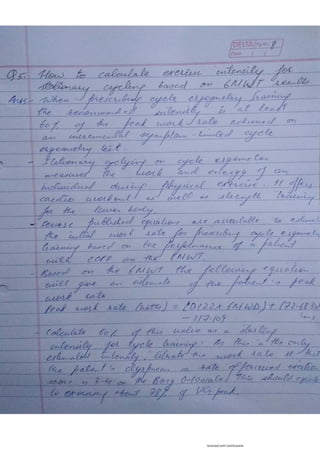 DELTA Pg No. 8
Date / /
Q5. How to calculate exercise intensity for
stationary cycling based on 6MWT results
Ans:- When prescribing cycle ergometry training
the recommended intensity is at least
60% of the peak work rate achieved on
an incremental symptom-limited cycle
ergometry test.
- Stationary cycling on cycle ergometer
measures the work and energy of an
individual during physical exercise. It offers
cardio workout as well as strength training
for the lower body.
- Several published equations are available to estimate
the initial work rate for prescribing cycle ergometry
training based on the performance of a patient
with COPD on the 6MWT.
- Based on the 6MWT the following equation
will give an estimate of the patient's peak
work rate
Peak work rate (watts) = (0.122 x 6MWD) + (72.683 x
- 117.109
- Calculate 60% of this value as a starting
intensity for cycle training. As this is the only
estimated intensity, titrate the work rate so that
the patient's dyspnoea or rate of perceived exertion
score is 3-4 on the Borg 0-10 scale. This should equate
to exercising about 78% of VO2 peak.
Scanned with CamScanner